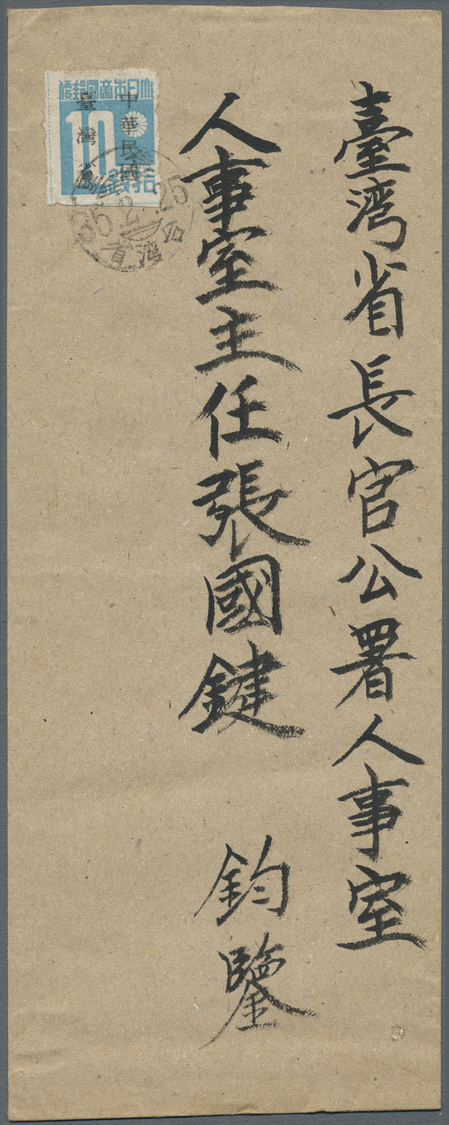 臺灣省長官公署人事室
人事室主任張國鍵 鈞鑒
大日本帝國郵便
中華民國
臺灣省
10
拾錢
35.2.25
臺灣省